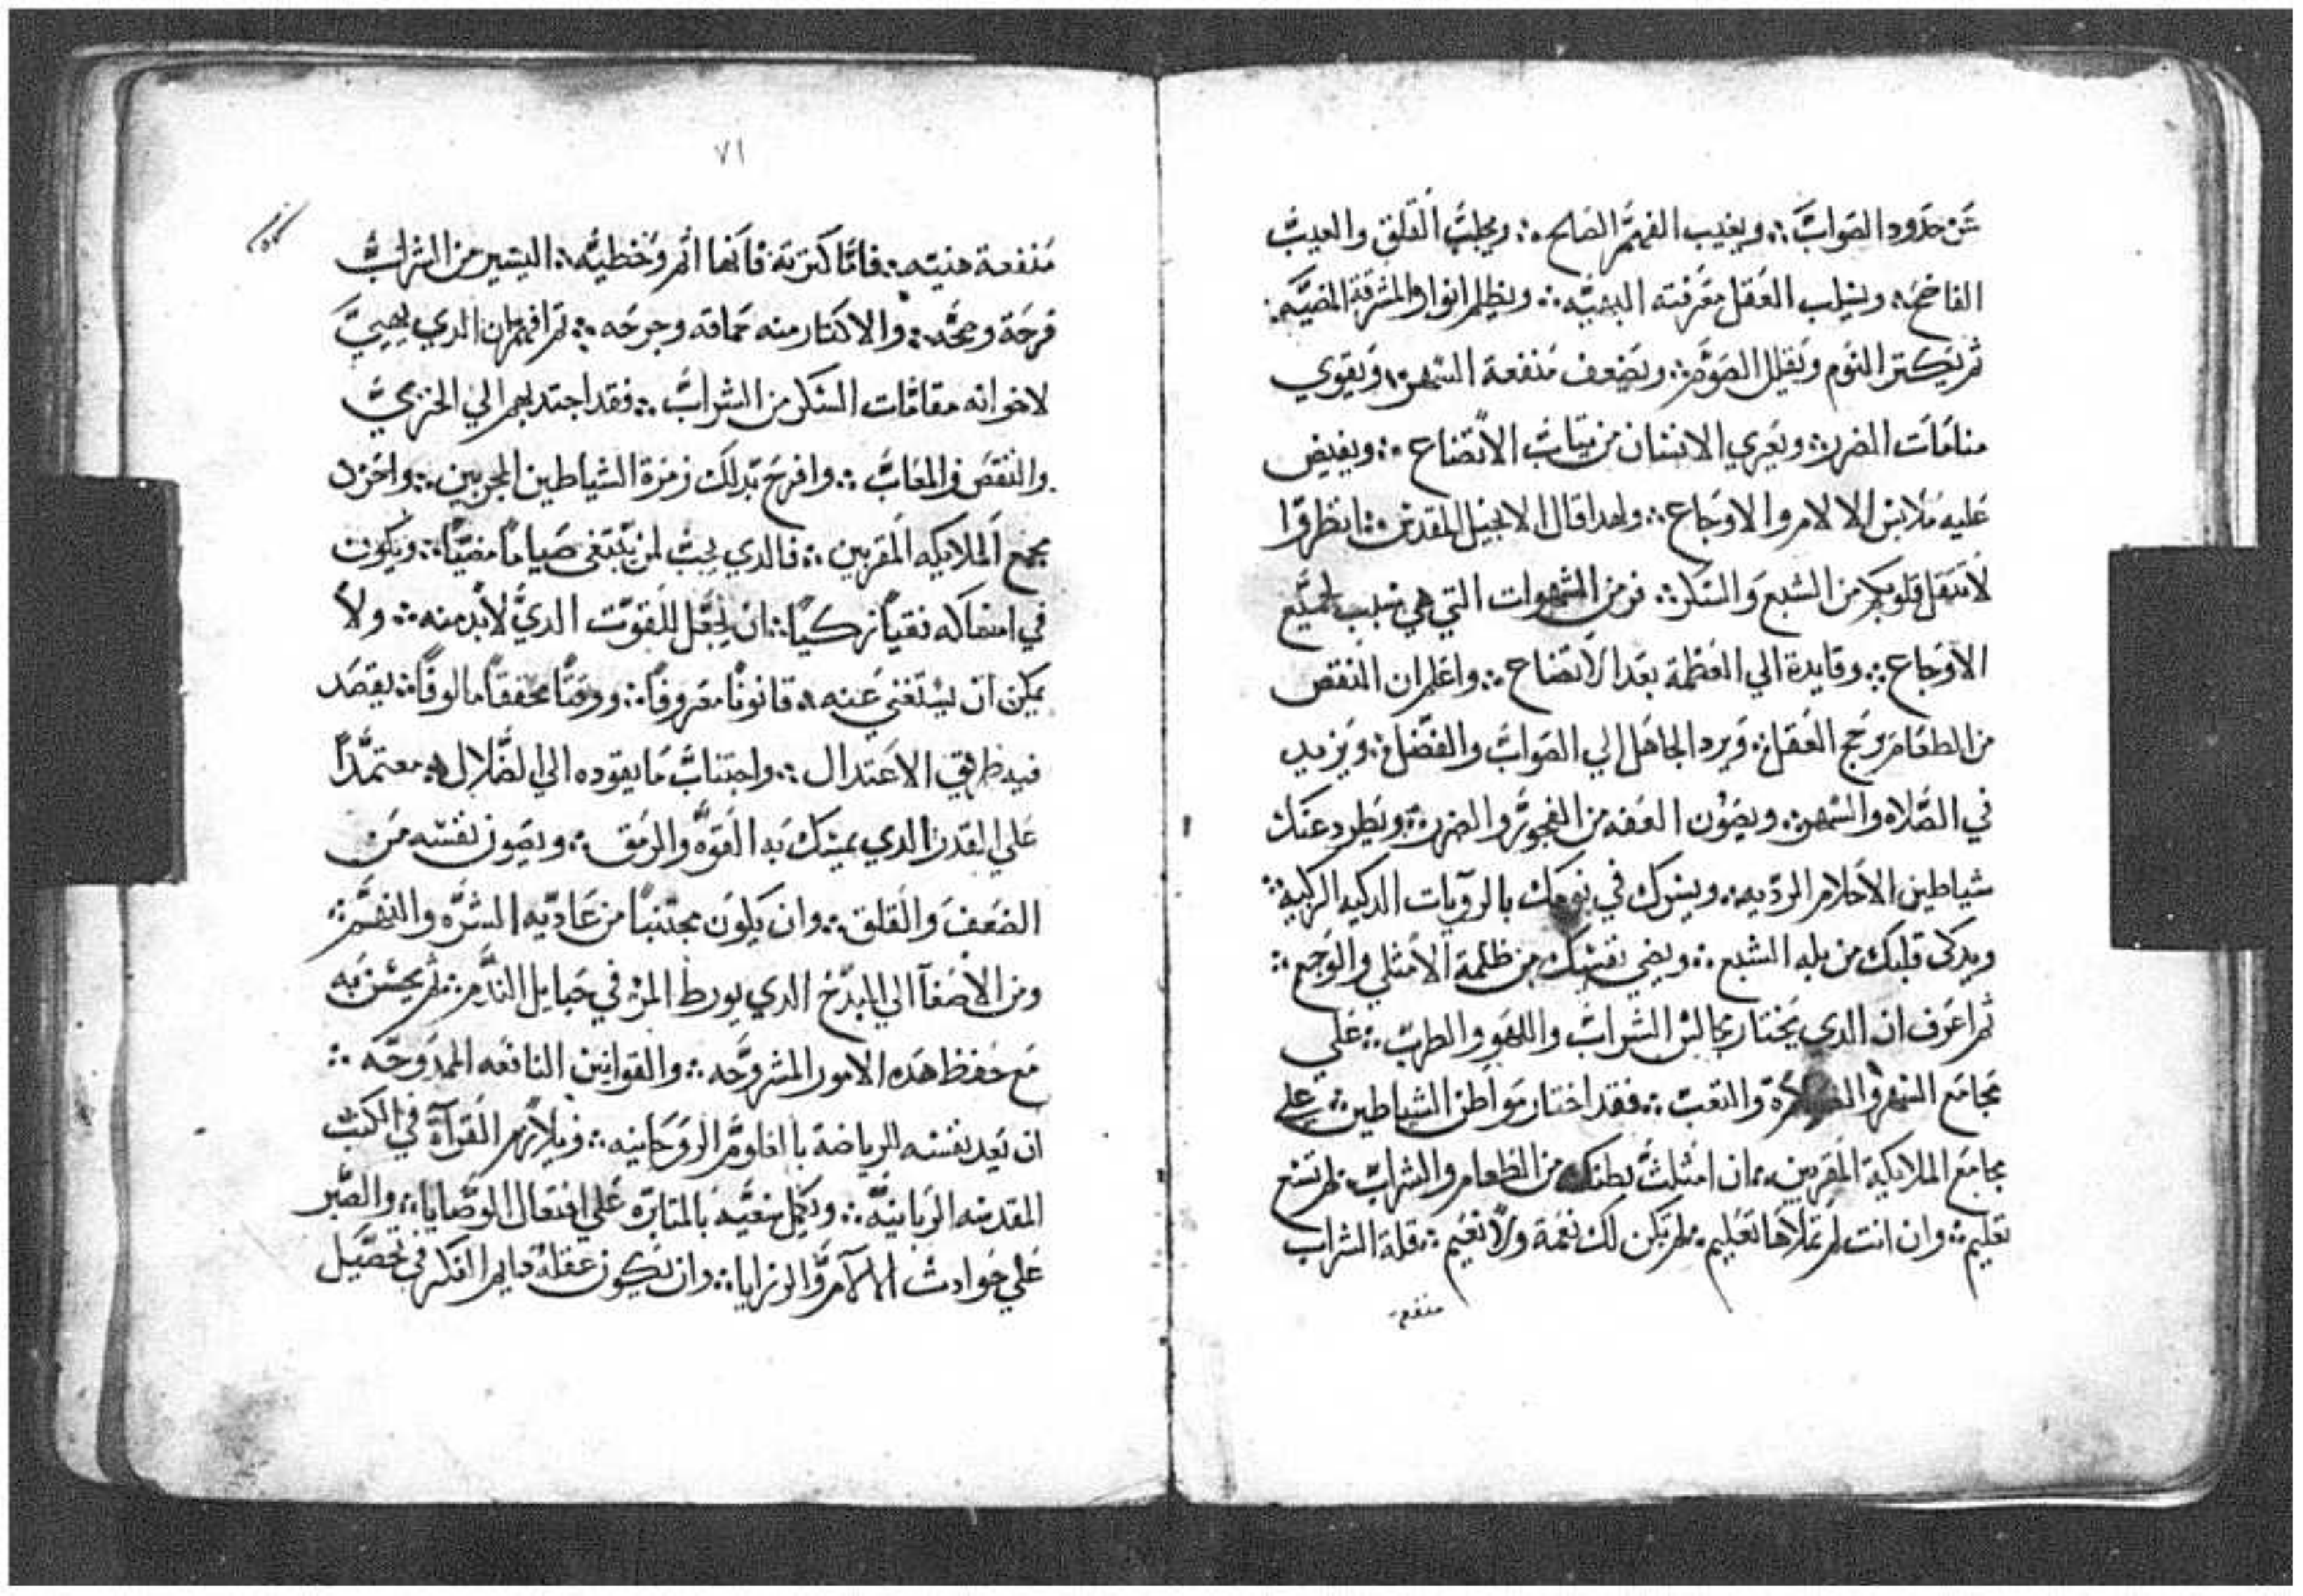 عن حدود الصواب ⁘ ويغيب الفهم الصالح ⁘ ويجلب القلق والعيب
الفاضح ⁘ ويسلب العقل معرفته البهيه ⁘ ويظلم انواره المشرقة المضيه ⁘
ثم يكتر النوم ويقلل الصوم ⁘ ويضعف منفعة السهر ⁘ ويقوي
منامات الضرر ⁘ ويعري الانسان من تياب الاتضاع ⁘ ويفيض
عليه ملابس الالام والاوجاع ⁘ ولهدا قال الانجيل المقدس ⁘ انظروا
لا تتقل قلوبكم من الشبع والسكر ⁘ فر من الشهوات التي هي سبب لجميع
الاوجاع ⁘ وقايدة الي العظمة بعد الاتضاع ⁘ واعلم ان النقص
من الطعام يرجح العقل ⁘ ويرد الجاهل الي الصواب والفضل ⁘ ويزيد
في الصلاه والسهر ⁘ ويصون العفه من الفجور والضرر ⁘ ويطرد عنك
شياطين الاحلام الرديه ⁘ ويسرك في نومك بالرويات الدكيه الزكية ⁘
ويدكي قلبك من بله الشبع ⁘ ويضي نفسك من ظلمة الامتلي والوجع ⁘
ثم اعرف ان الدي يختار مجالس الشراب واللهو والطرب ⁘ علي
مجامع السهر والتعب ⁘ فقد اختار مواطن الشياطين ⁘ علي
مجامع الملايكة المقربين ⁘ ان امتلت بطنك من الطعام والشراب لم تسع
تعليم ⁘ وان انت لم تملاها تعليم ⁘ لم يكن لك نعمة ولا نعيم ⁘ قلة الشراب
منفعه
٧١
منفعة هنيه ⁘ فاما كترته فانها اتم وخطيه ⁘ اليسير من الشراب
فرحة وصحه ⁘ والاكتار منه حماقه وجرحه ⁘ تم افهم بان الدي يهيي
لاخوانه مقامات السكر من الشراب ⁘ فقد اجتدبهم الي الخزي
والنقص والمعاب ⁘ وافرح بدلك زمرة الشياطين المجربين ⁘ واحزن
مجمع الملايكه المقربين ⁘ فالدي يجب لمن يبتغي صياما مضيا ⁘ ويكون
في امساكه نقيا زكيا ⁘ ان يجعل للقوت الدي لا بد منه ⁘ ولا
يمكن ان يستغني عنه ⁘ قانونا معروفا ⁘ ووقتا محققا مالوفا ⁘ يقصد
فيه طريق الاعتدال ⁘ واجتناب ما يقوده الي الضلال ⁘ معتمدا
علي القدر الدي يمسك به القوه والرمق ⁘ ويصون نفسه من
الضعف والقلق ⁘ وان يكون مجتنبا من عاديه الشره والنهم ⁘
ومن الاصغا الي البدخ الدي يورط المر في حبايل الندم ⁘ تم يحسن به
مع حفظ هده الامور المشروحه ⁘ والقوانين النافعه الممدوحه ⁘
ان يعد نفسه للرياضة بالعلوم الروحانيه ⁘ ويلازم القرآة في الكتب
المقدسه الربانيه ⁘ ويكمل سعيه بالمتابره علي افتعال الوصايا ⁘ والصبر
علي حوادث الالام والرزايا ⁘ وان يكون عقله دايم الفكر في تحصيل